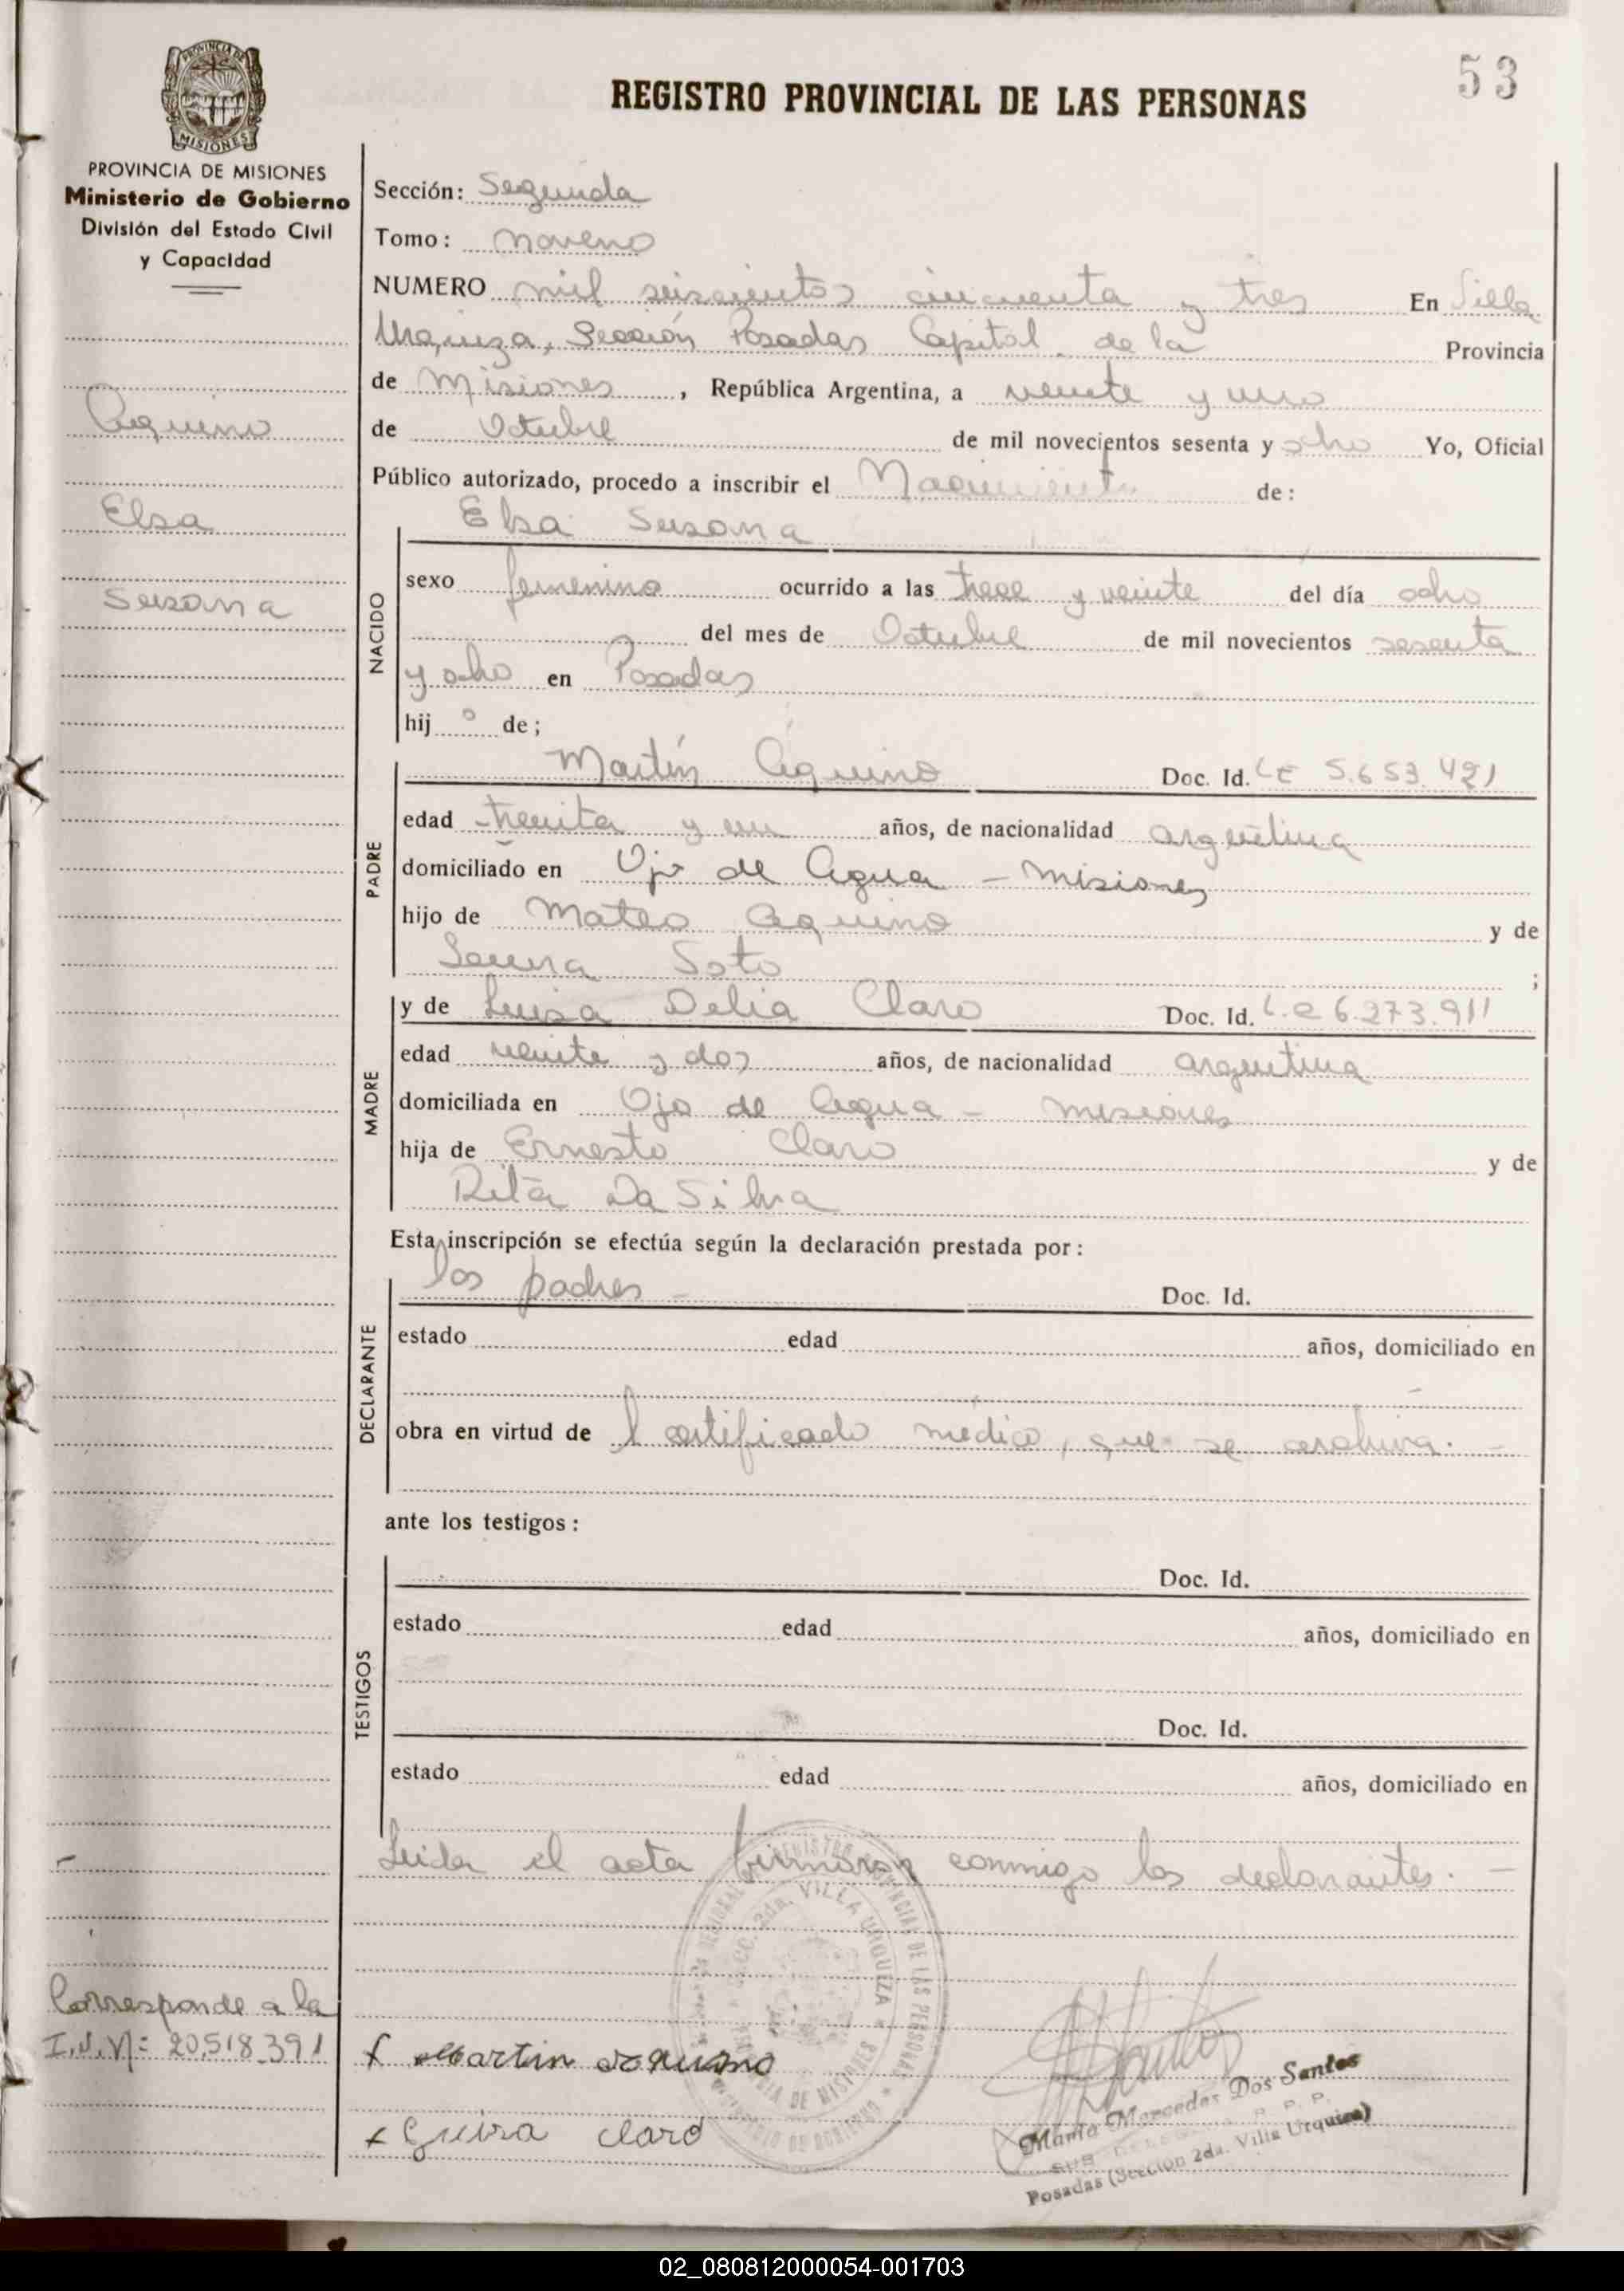 53
REGISTRO PROVINCIAL DE LAS PERSONAS
PROVINCIA DE MISIONES
MISIONES
PROVINCIA DE MISIONES
Ministerio de Gobierno
División del Estado Civil
y Capacidad
Aquino
Elsa
Susana
Sección: Segunda
Tomo: Noveno
NUMERO mil seiscientos cincuenta y tres En Villa
Urquiza, Sección Posadas Capital de la Provincia
de Misiones, República Argentina, a veinte y uno
de Octubre de mil novecientos sesenta y ocho Yo, Oficial
Público autorizado, procedo a inscribir el Nacimiento de:
Elsa Susana
NACIDO
sexo femenino ocurrido a las trece y veinte del día ocho
del mes de Octubre de mil novecientos sesenta
y ocho en Posadas
hij o de;
PADRE
Martín Aquino Doc. Id. LE 5.653.421
edad treinta y un años, de nacionalidad argentina
domiciliado en Ojo de Agua - Misiones
hijo de Mateo Aquino y de
Soto ;
MADRE
y de Luisa Delia Claro Doc. Id. L.C 6.273.911
edad veinte y dos años, de nacionalidad argentina
domiciliada en Ojo de Agua - Misiones
hija de Ernesto Claro y de
Rita Da Silva
Esta inscripción se efectúa según la declaración prestada por:
DECLARANTE
los padres - Doc. Id.
estado edad años, domiciliado en
obra en virtud de l certificado médico, que se archiva. -
ante los testigos:
TESTIGOS
Doc. Id.
estado edad años, domiciliado en
Doc. Id.
estado edad años, domiciliado en
Leida el acta firmaron conmigo los declarantes. -
REGISTRO PROVINCIAL DE LAS PERSONAS
SECC. 2da. VILLA URQUIZA
Corresponde a la
I.N.Nº: 20.518.391
x Martin Aquino
x Luisa Claro
María Mercedes Dos Santos
Posadas (Sección 2da. Villa Urquiza)
02_080812000054-001703